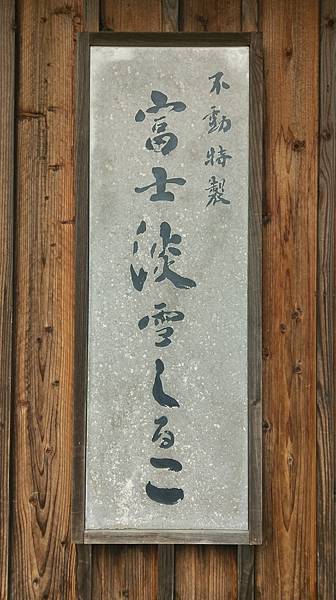 不動特製
富士淡雪しるこ